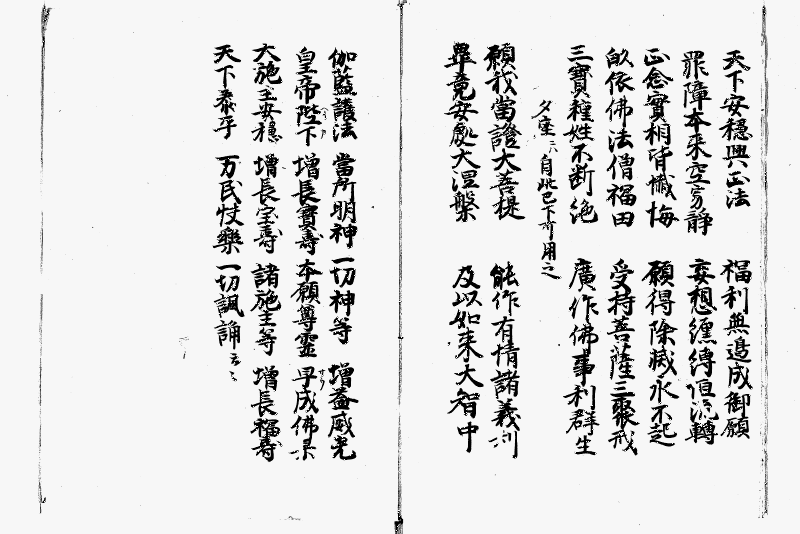 天下安穏興正法　福利無邊成御願
罪障本来空寂静　妄想纏縛恒流轉
正念實相皆懺悔　願得除滅永不起
皈依佛法僧福田　受持菩薩三聚戒
三寶種姓不断絶　廣作佛事利群生
夕座ニハ自此已下可用之
願我當證大菩提　能作有情諸義利
畢竟安處大涅槃　及以如来大智中
伽藍護法　當所明神　一切神等　増益威光
皇帝陛下　増長寶壽　本願尊霊　早成佛果
大施主安穏　増長宝壽　諸施主等　増長福壽
天下泰平　万民快樂　一切諷誦云々